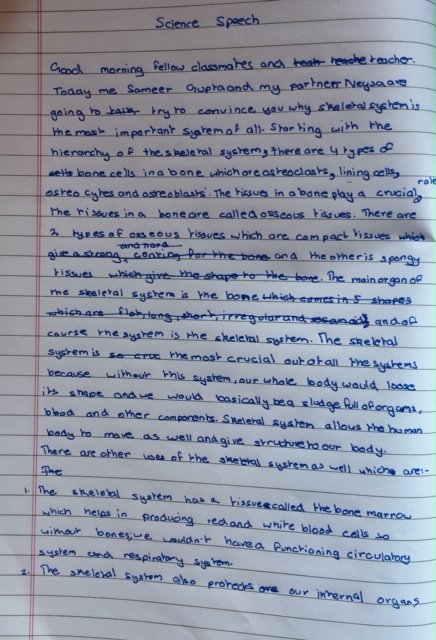 Science Speech
Good morning fellow classmates and teacher.
Today me Sameer Gupta and my partner Neysa are
going to try to convince you why skeletal system is
the most important system of all. Starting with the
hierarchy of the skeletal system, there are 4 types of
bone cells in a bone which are osteoclasts, lining cells,
osteocytes and osteoblasts. The tissues in a bone play a crucial role
the tissues in a bone are called osseous tissues. There are
2 types of osseous tissues which are compact tissues which
give a strong, and hard coating for the bone and the other is spongy
tissues which give the shape to the bone. The main organ of
the skeletal system is the bone which comes in 5 shapes
which are flat, long, short, irregular and and of
course the system is the skeletal system. The skeletal
system is so cruc the most crucial out of all the systems
because without this system, our whole body would loose
its shape and we would basically be a sludge full of organs,
blood and other components. Skeletal system allows the human
body to move as well and give structure to our body.
There are other uses of the skeletal system as well which are:-
The
1. The skeletal system has a tissue called the bone marrow
which helps in producing red and white blood cells so
without bones, we wouldn't have a functioning circulatory
system and respiratory system.
2. The skeletal system also protects our internal organs